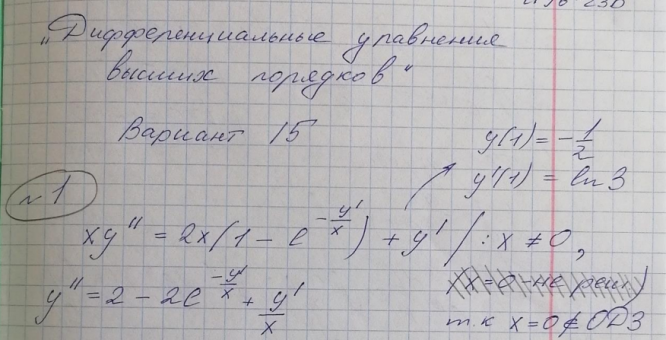 „Дифференциальные уравнения
высших порядков"
Вариант 15
y(1) = -1/2
y'(1) = ln 3
№1
xy'' = 2x(1 - e^{-y'/x}) + y' / : x ≠ 0,
y'' = 2 - 2e^{-y'/x} + y'/x
т.к x = 0 ∉ ОДЗ